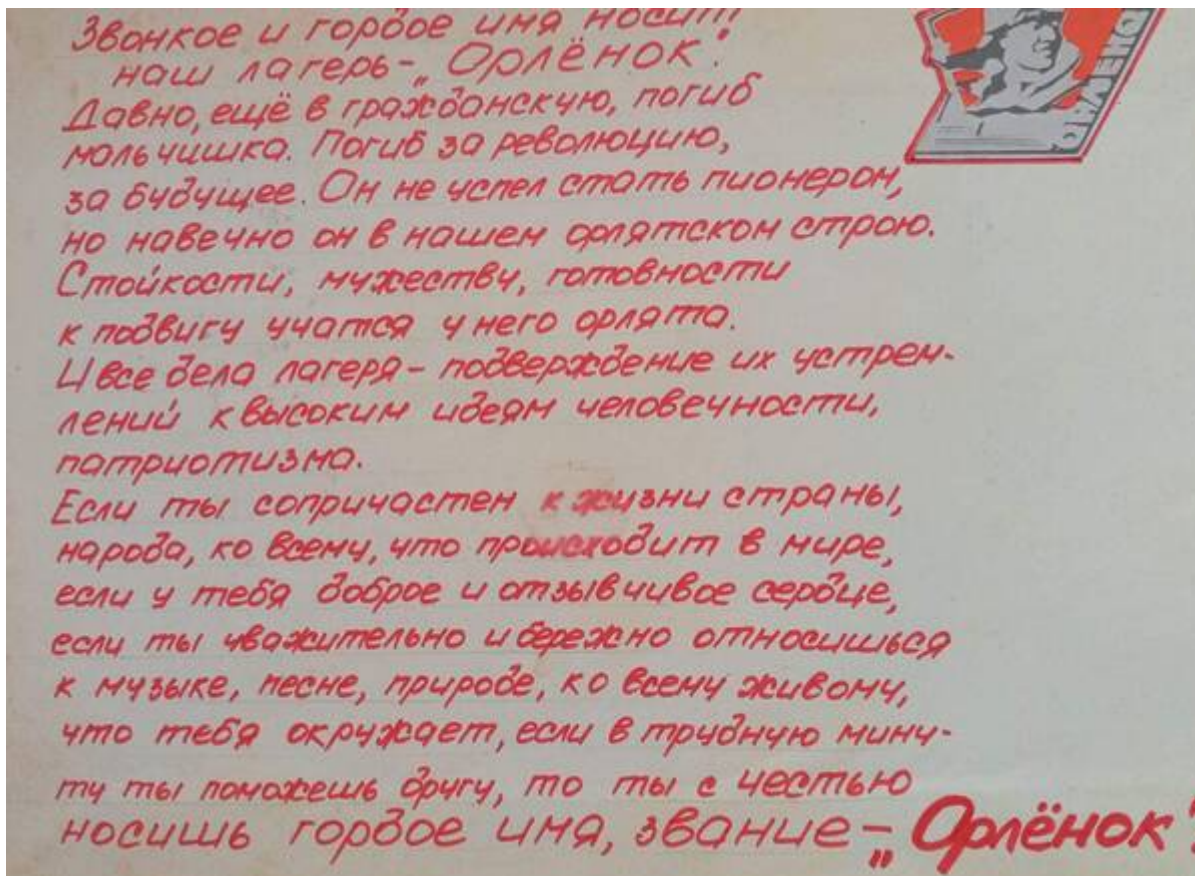 Звонкое и гордое имя носит
наш лагерь - „Орлёнок".
Давно, ещё в гражданскую, погиб
мальчишка. Погиб за революцию,
за будущее. Он не успел стать пионером,
но навечно он в нашем орлятском строю.
Стойкости, мужеству, готовности
к подвигу учатся у него орлята.
И все дела лагеря - подверждение их устрем-
лений к высоким идеям человечности,
патриотизма.
Если ты сопричастен к жизни страны,
народа, ко всему, что происходит в мире,
если у тебя доброе и отзывчивое сердце,
если ты уважительно и бережно относишься
к музыке, песне, природе, ко всему живому,
что тебя окружает, если в трудную мину-
ту ты поможешь другу, то ты с честью
носишь гордое имя, звание - „Орлёнок"